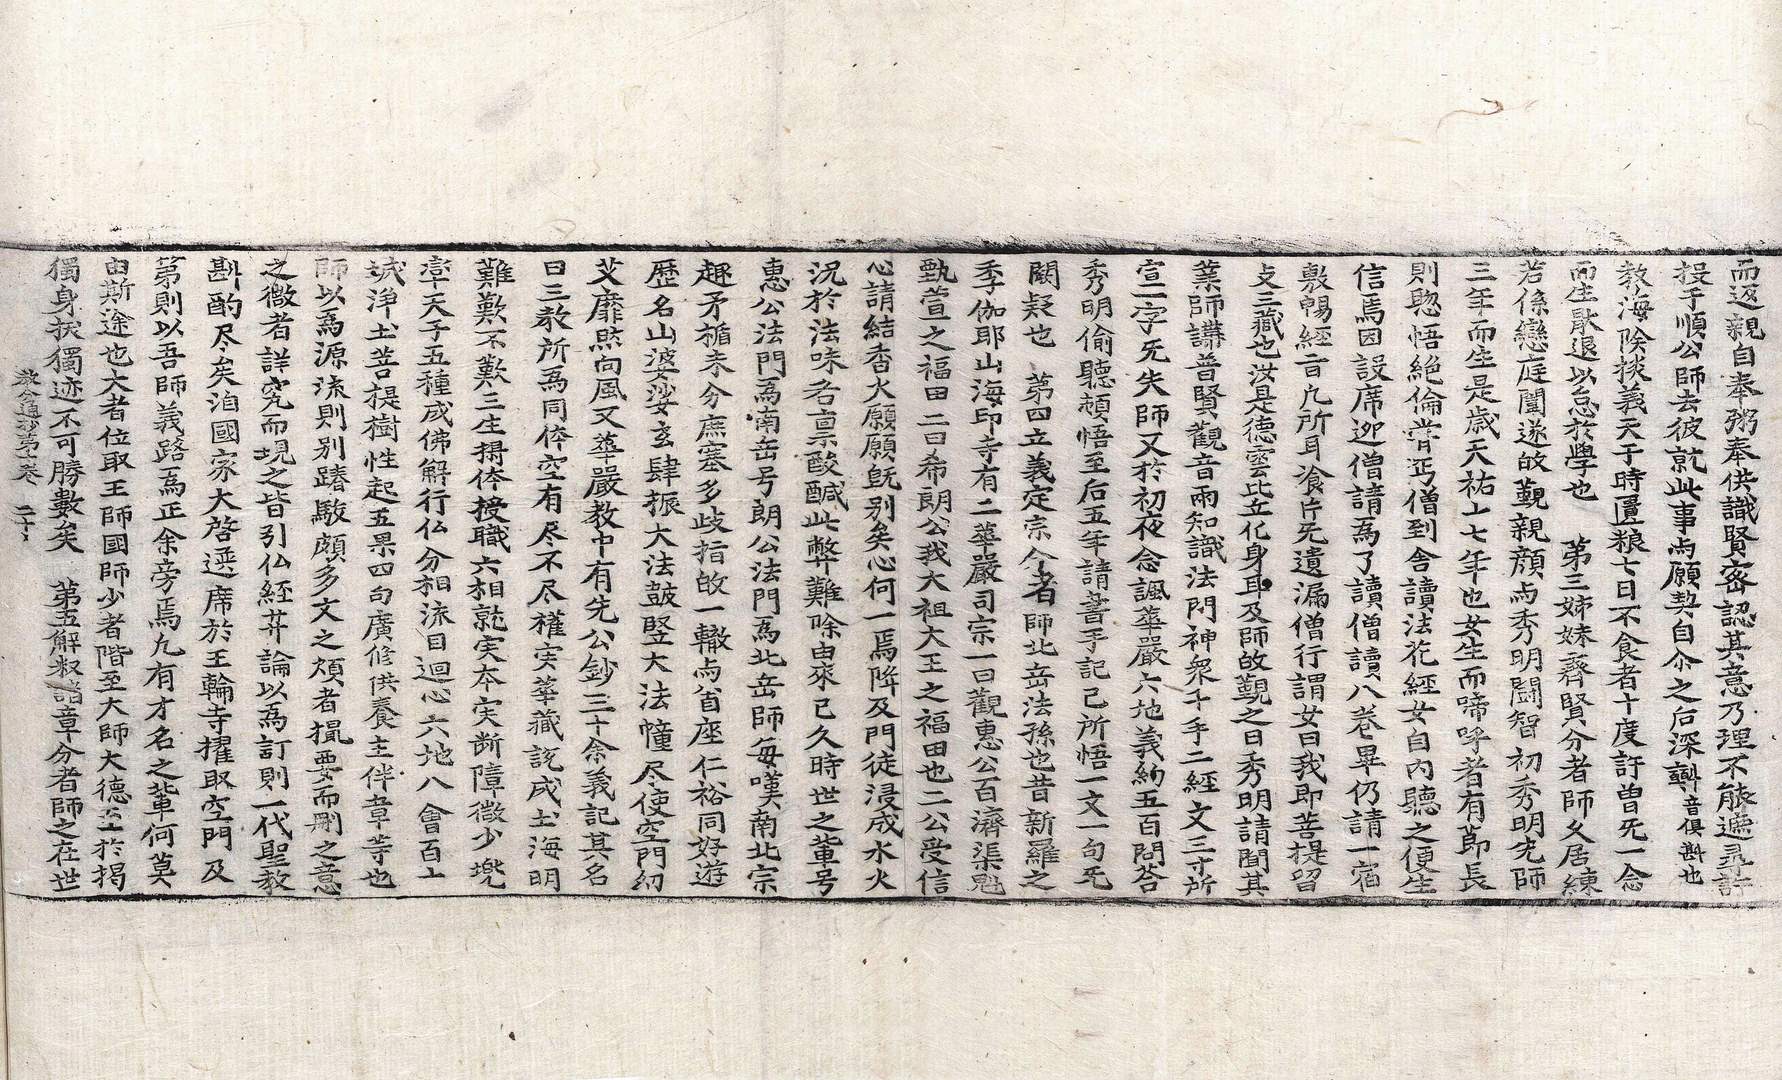 而返親自奉粥奉供識賢密認其意乃理不能遮尋許
投于順公師去彼就此事与願契自尒之后深斟音俱斟也
教海除掞義天于時匱粮七日不食者十度訝曽无一念
而生猒退以怠於學也　第三姊妹齊賢分者師久居練
若係戀庭闈遂故覲親顔与秀明闘智初秀明先師
三年而生是歳天祐十七年也女生而啼呼者有莭長
則聦悟絶倫甞丐僧到舎讀法花經女自內聽之便生
信焉因設席迎僧請為了讀僧讀八巻畢仍請一宿
敷暢經音凡所耳飡片无遺漏僧行謂女曰我即菩提留
支三藏也汝是徳雲比丘化身耳及師故覲之日秀明請聞其
業師講普賢觀音兩知識法門神衆千手二經文三寸所
宣一字无失師又於初夜念諷華嚴六地義約五百問荅
秀明偷聽頓悟至后五年請書手記己所悟一文一句无
闕疑也　第四立義定宗分者師北岳法孫也昔新羅之
季伽耶山海印寺有二華嚴司宗一曰觀惠公百濟渠魁
甄萱之福田二曰希朗公我大祖大王之福田也二公受信
心請結香火願願旣别矣心何一焉降及門徒浸成水火
況於法味各禀酸醎此弊難除由來已久時世之軰号
惠公法門爲南岳号朗公法門爲北岳師每嘆南北宗
趣矛楯未分庶塞多歧指故一轍与首座仁裕同好遊
歷名山婆娑玄肆振大法皷竪大法幢尽使空門幼
艾靡然向風又華嚴敎中有先公鈔三十余義記其名
曰三敎所爲同体空有尽不尽權実華藏該成土海明
難歎不歎三生攝体授職六相就実本実断障微少兠
率天子五種成佛解行仏分相流目迴心六地八會百六
城淨土菩提樹性起五果四句廣修供養主伴章等也
師以爲源流則别蹖駮頗多文之煩者撮要而刪之意
之微者詳究而現之皆引仏経并論以爲訂則一代聖敎
斟酌尽矣洎國家大啓選席於王輪寺擢取空門及
第則以吾師義路爲正余旁焉凢有才名之軰何莫
由斯途也大者位取王師國師少者階至大師大徳至於揭
獨身拔獨迹不可勝數矣　第五解釈諸章分者師之在世
敎分通抄第十卷　二十